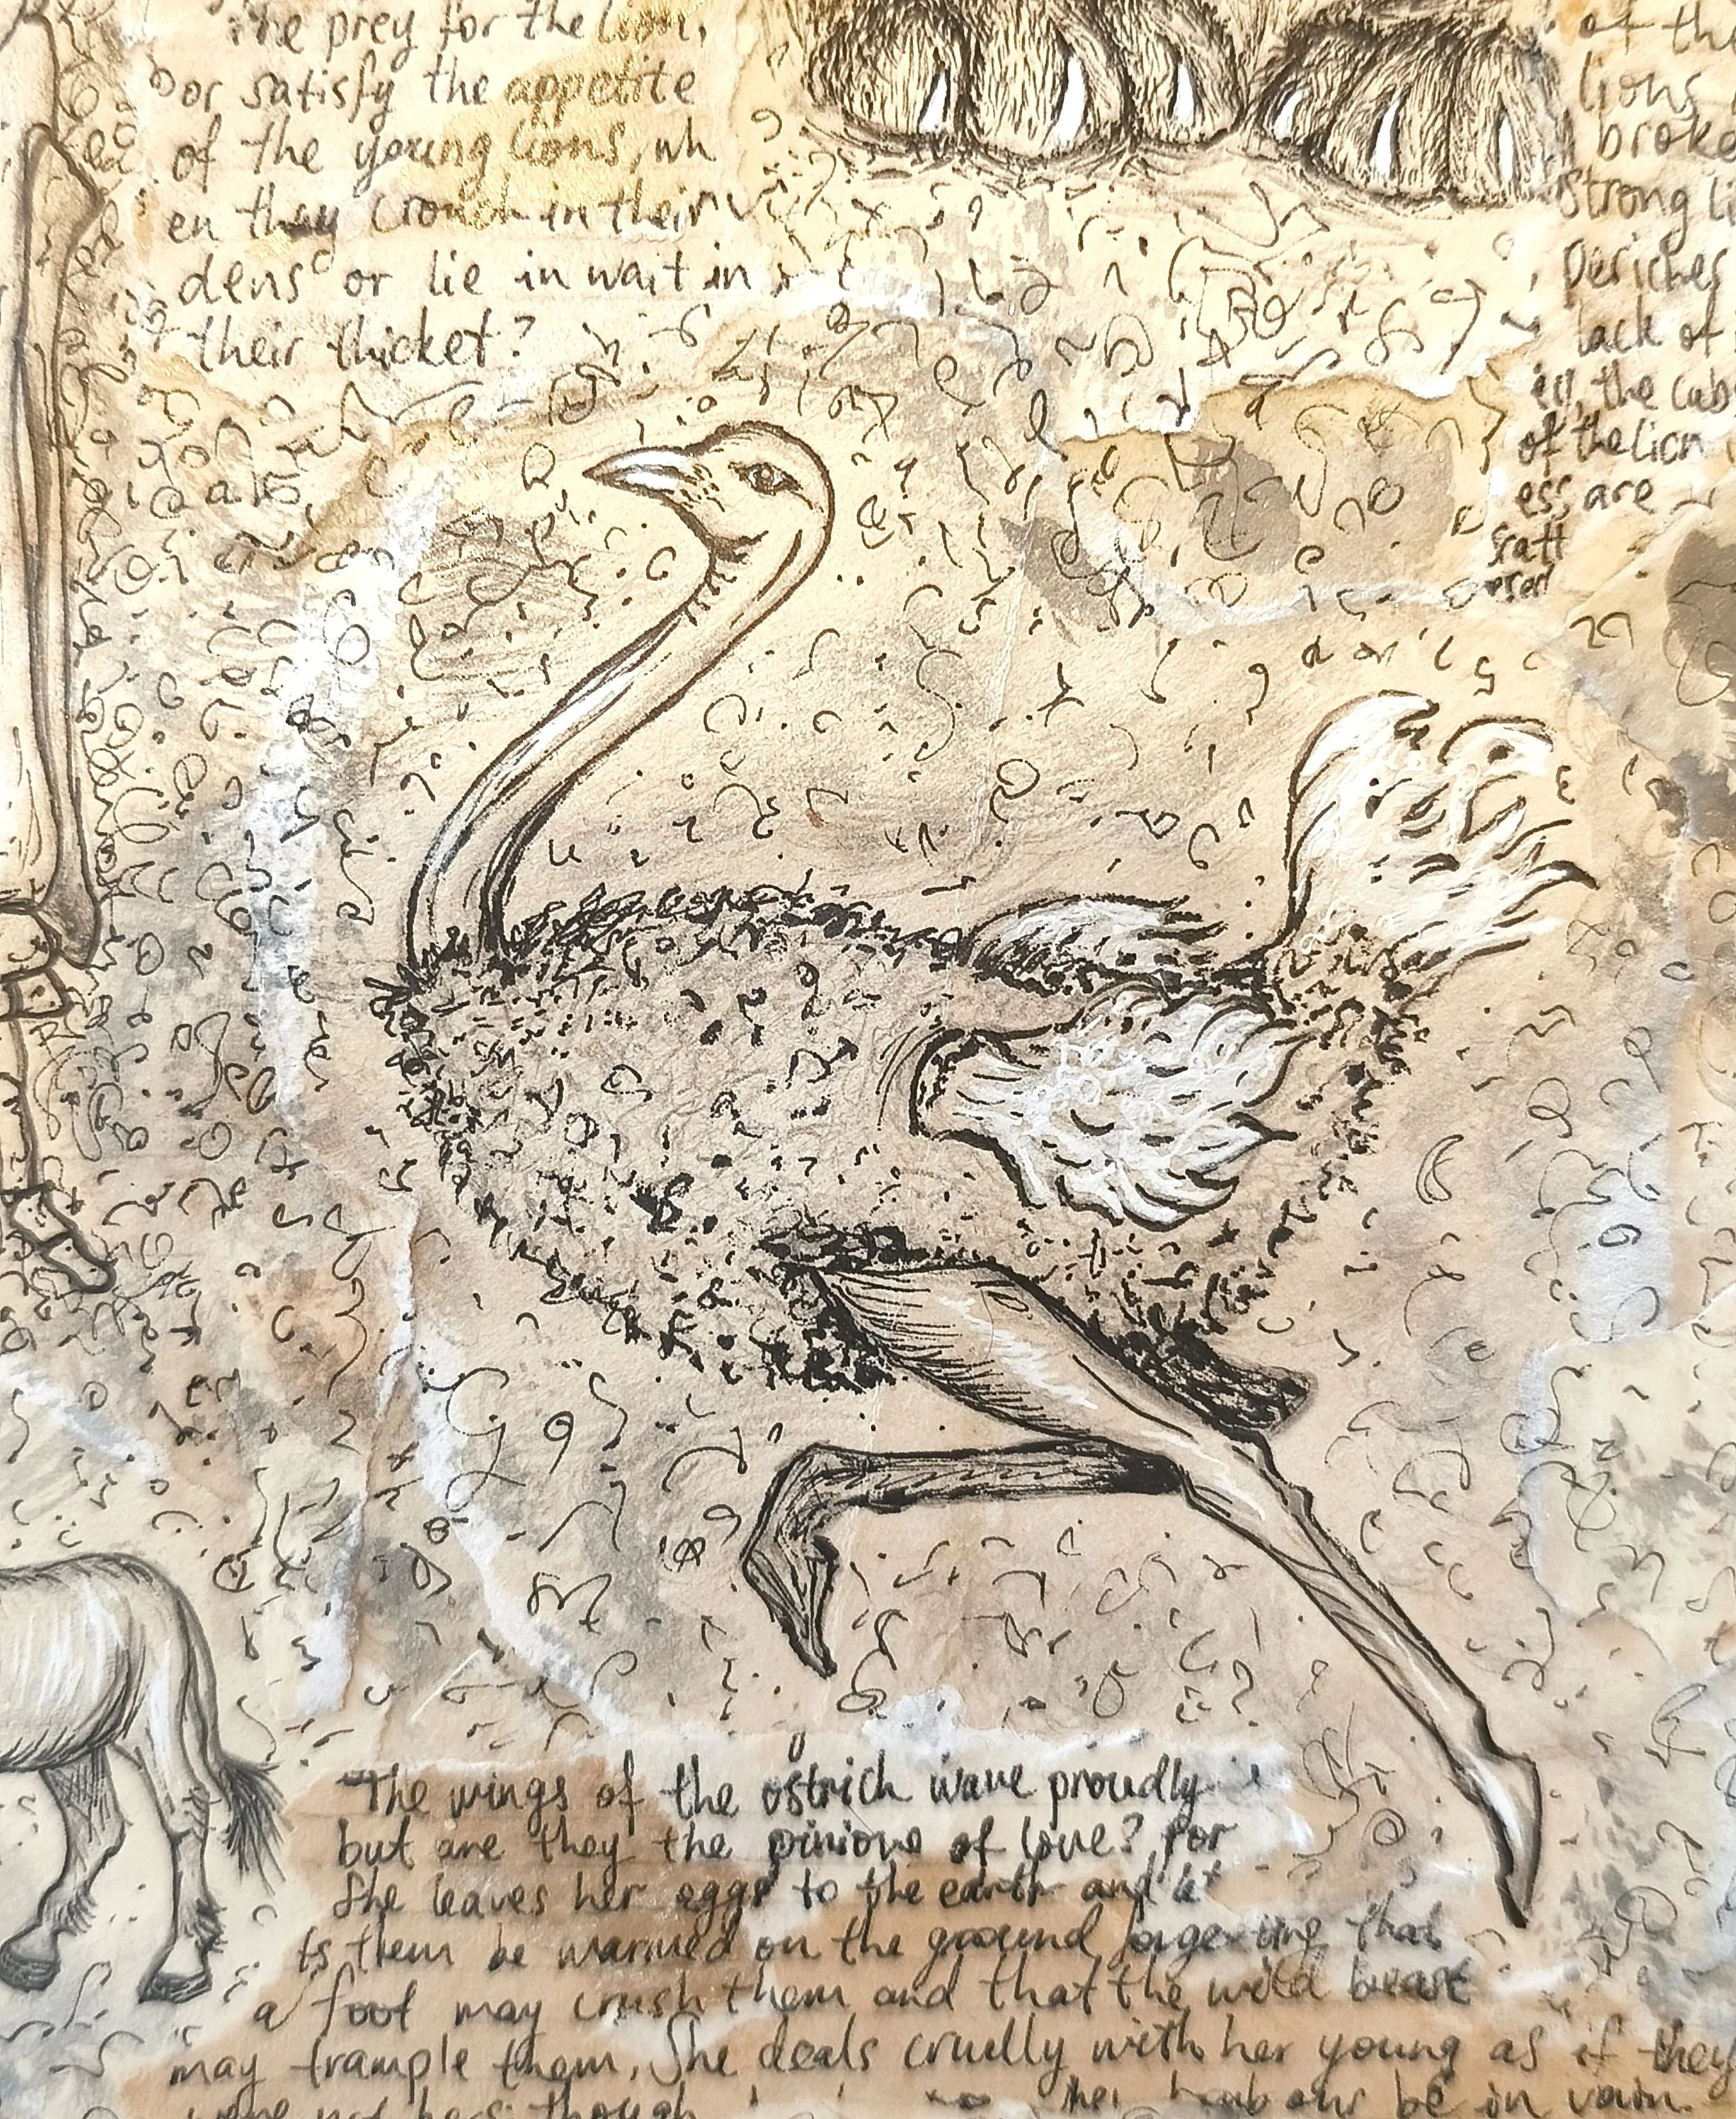 the prey for the lion,
or satisfy the appetite
of the young lions, wh
en they crouch in their
dens or lie in wait in
their thicket?
of the
lions
broke
Strong li
Perishes
lack of
the cubs
of the lion
ess are
scatt
ered
The wings of the ostrich wave proudly
but are they the pinions of love? For
She leaves her eggs to the earth and le
ts them be warmed on the ground forgetting that
a foot may crush them and that the wild beast
may trample them. She deals cruelly with her young as if they
were not hers though
her labour be in vain